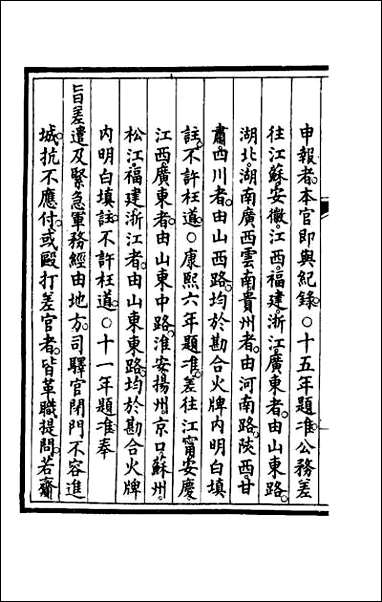 申報者。本官即與紀錄。○十五年題准。公務差
往江蘇。安徽。江西。福建。浙江。廣東者。由山東路。
湖北。湖南。廣西。雲南。貴州者。由河南路。陝西。甘
肅。四川者。由山西路。均於勘合火牌內明白填
註。不許枉道。○康熙六年題准。差往江甯。安慶。
江西。廣東者。由山東中路。淮安揚州京口蘇州。
松江。福建浙江者。由山東東路。均於勘合火牌
內明白填註。不許枉道。○十一年題准奉
旨差遣及緊急軍務經由地方。司驛官閉門不容進
城。抗不應付。或毆打差官者。皆革職提問。若齎